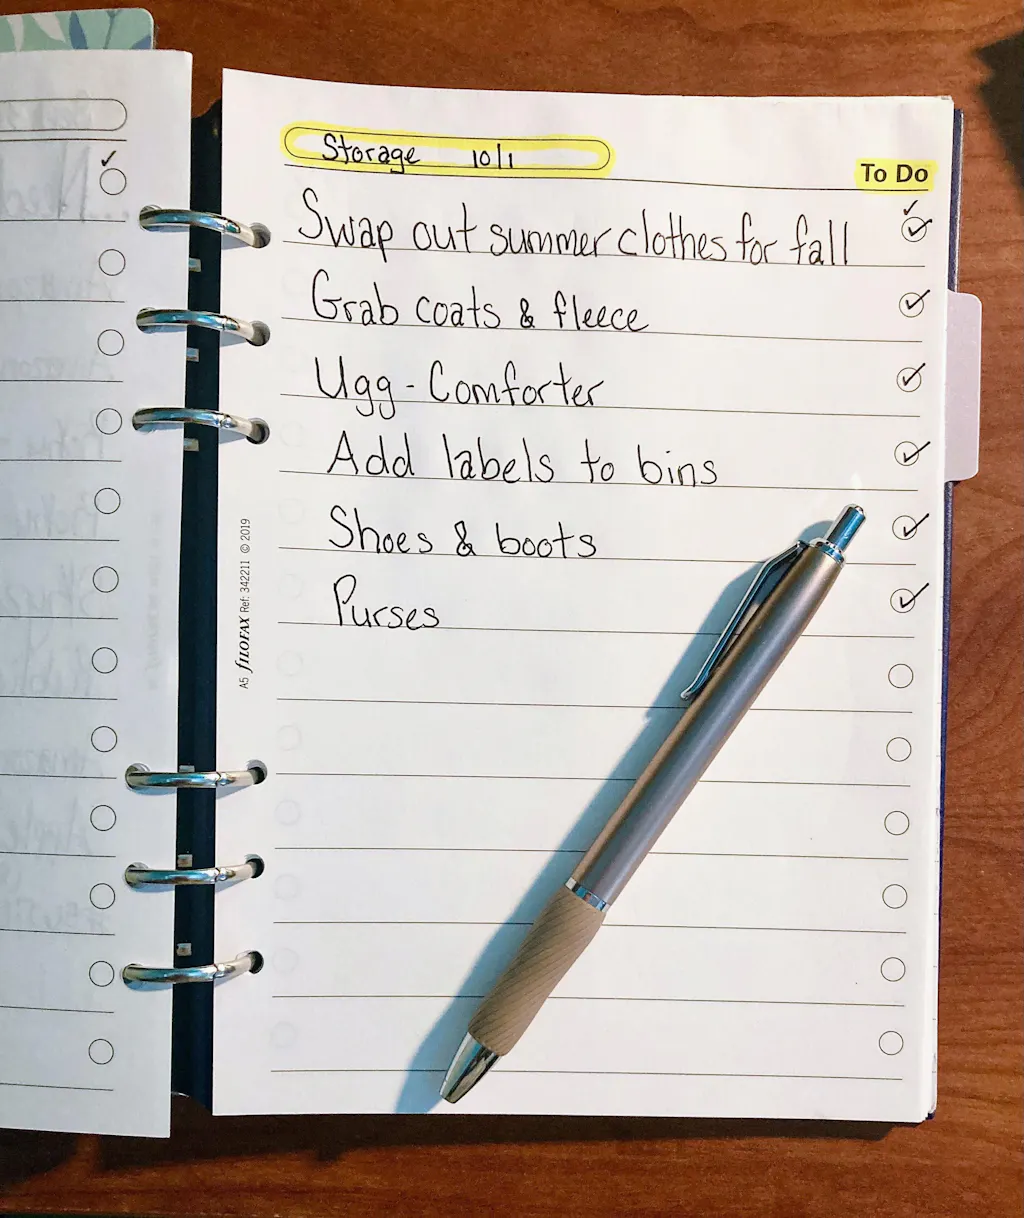 Storage 10/1
To Do
Swap out summer clothes for fall
Grab coats & fleece
Ugg - Comforter
Add labels to bins
Shoes & boots
Purses
A5 FILOFAX Ref: 342211 © 2019